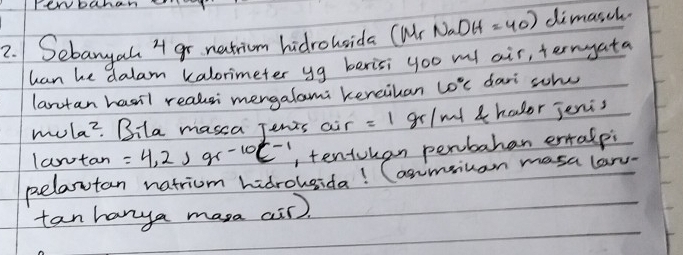 Perubahan
2. Sebanyak 4 gr natrium hidroksida (Mr NaOH = 40) dimasuk
kan ke dalam kalorimeter yg berisi 400 ml air, ternyata
larutan hasil reaksi mengalami kenaikan 10°C dari suhu
mula². Bila massa jenis air = 1 gr/ml & kalor jenis
larutan = 4,2 J gr⁻¹°C⁻¹, tentukan perubahan entalpi
pelarutan natrium hidroksida! (asumsikan masa laru-
tan hanya masa air).